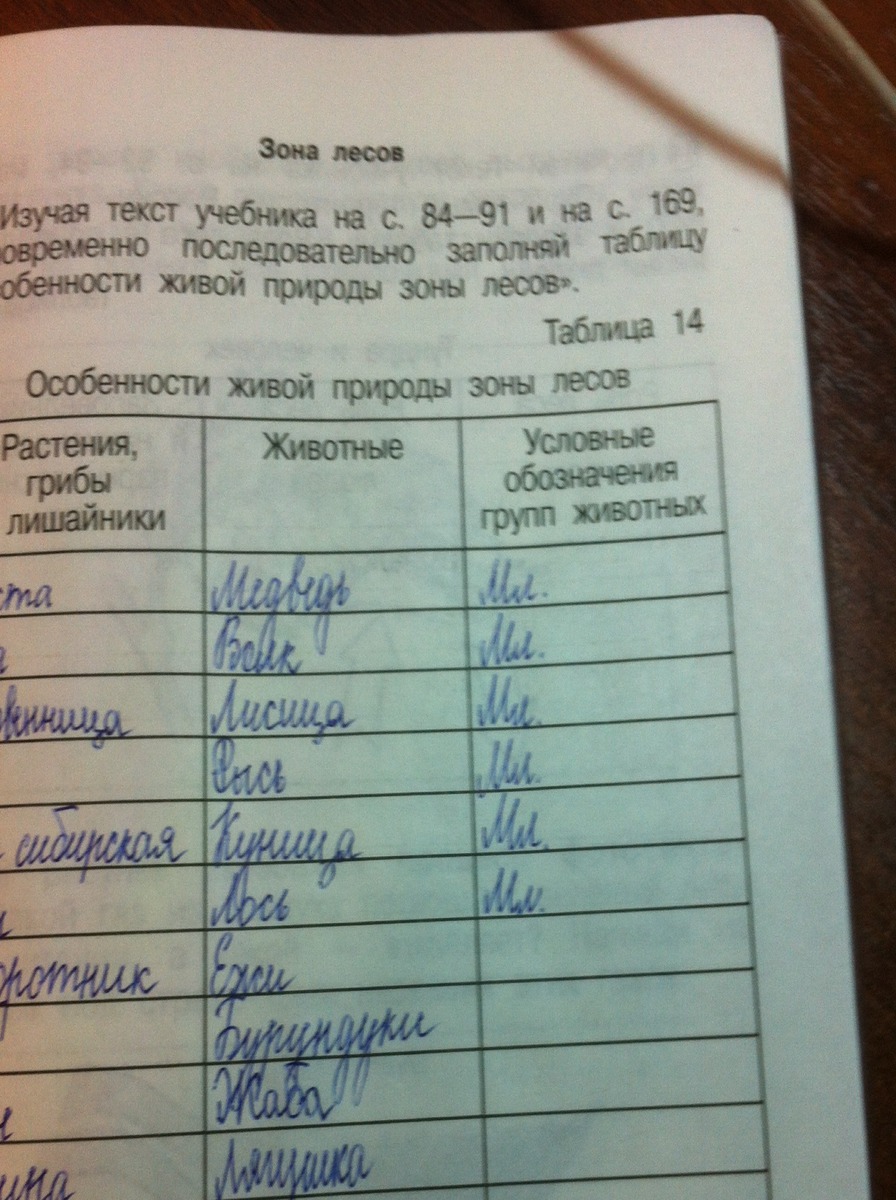 Зона лесов
Изучая текст учебника на с. 84—91 и на с. 169,
овременно последовательно заполняй таблицу
обенности живой природы зоны лесов».
Таблица 14
Особенности живой природы зоны лесов
Растения,
грибы
лишайники
Животные
Условные
обозначения
групп животных
ста Медведь Мл.
а Волк Мл.
венница Лисица Мл.
Рысь Мл.
сибирская Куница Мл.
Лось Мл.
оротник Ежи
Бурундуки
Жаба
ина Лягушка